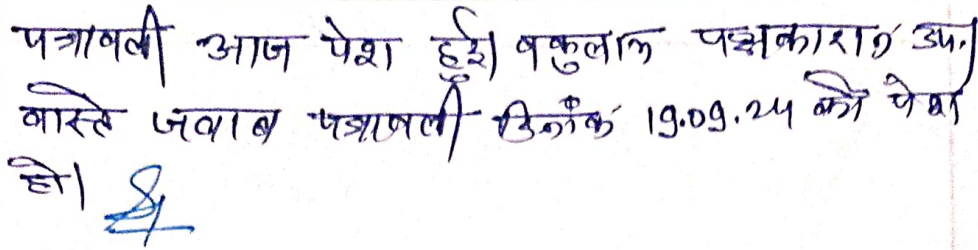 पत्रावली आज पेश हुई। वकुलाल पक्षकारान उप.।
वास्ते जवाब पत्रावली दिनांक 19.09.24 को पेश
हो।